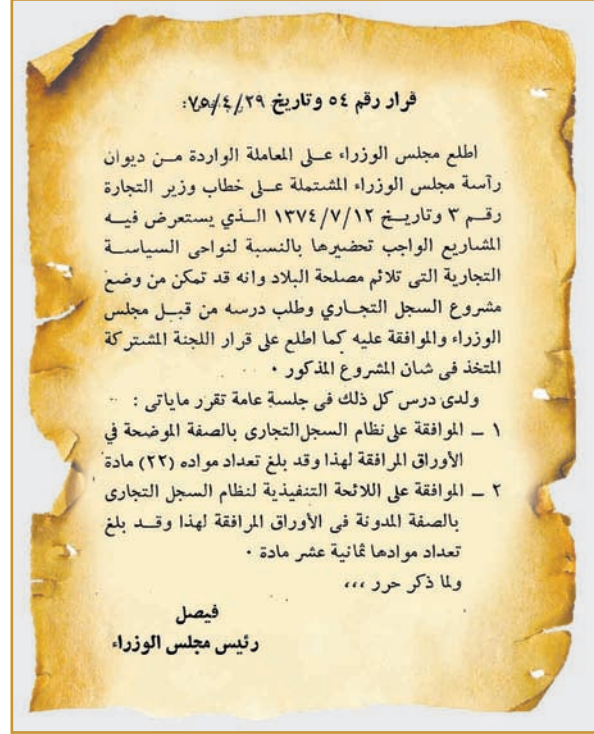 قرار رقم ٥٤ وتاريخ ٧٥/٤/٢٩:
اطلع مجلس الوزراء على المعاملة الواردة من ديوان
رآسة مجلس الوزراء المشتملة على خطاب وزير التجارة
رقم ٣ وتاريخ ١٣٧٤/٧/١٢ الذي يستعرض فيه
المشاريع الواجب تحضيرها بالنسبة لنواحى السياسة
التجارية التى تلائم مصلحة البلاد وانه قد تمكن من وضع
مشروع السجل التجارى وطلب درسه من قبل مجلس
الوزراء والموافقة عليه كما اطلع على قرار اللجنة المشتركة
المتخذ فى شان المشروع المذكور ٠
ولدى درس كل ذلك فى جلسة عامة تقرر ماياتى :
١ – الموافقة على نظام السجل التجارى بالصفة الموضحة في
الأوراق المرافقة لهذا وقد بلغ تعداد مواده (٢٢) مادة
٢ – الموافقة على اللائحة التنفيذية لنظام السجل التجارى
بالصفة المدونة فى الأوراق المرافقة لهذا وقد بلغ
تعداد موادها ثمانية عشر مادة ٠
ولما ذكر حرر ،،،
فيصل
رئيس مجلس الوزراء